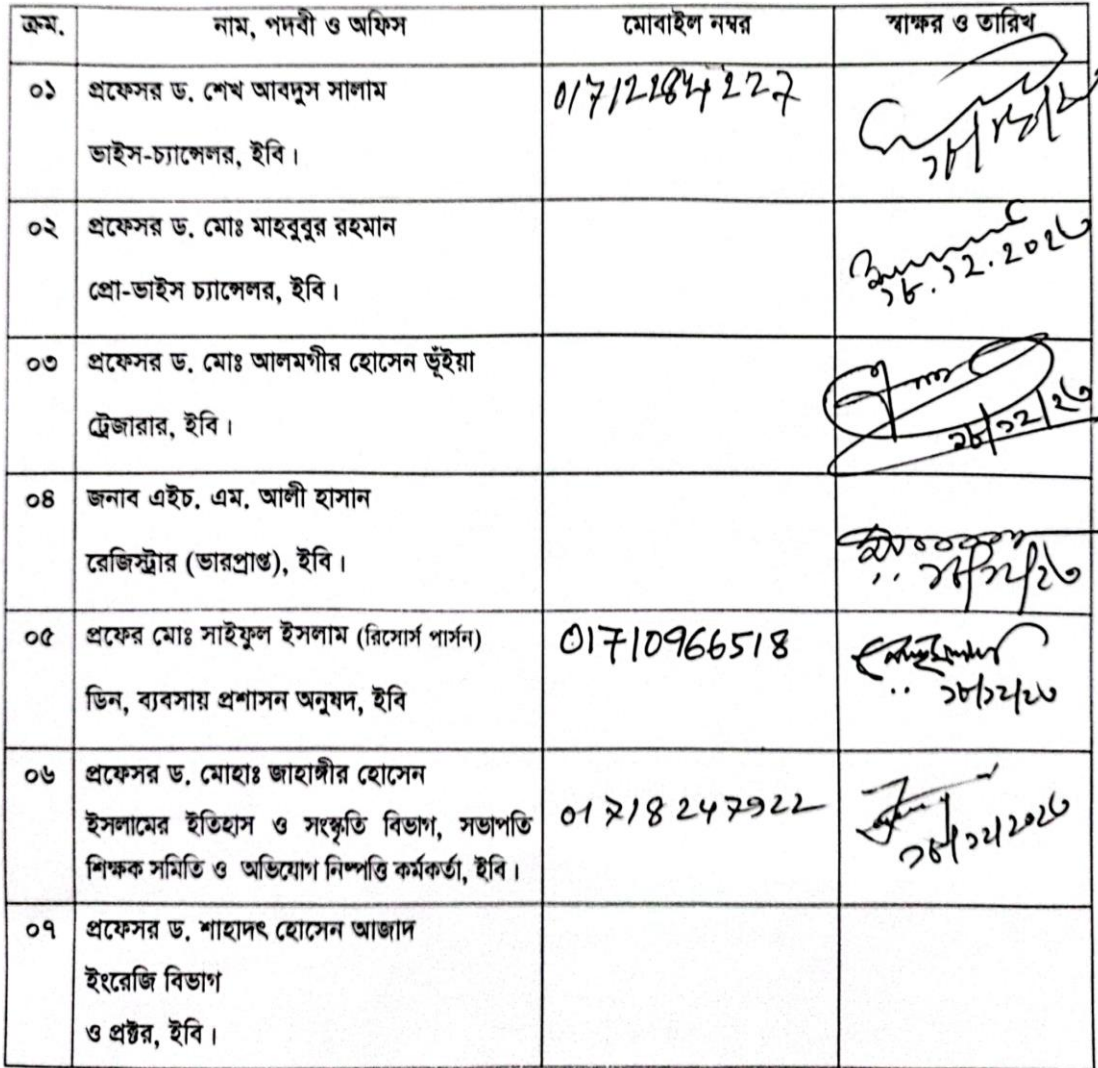 ক্রম. নাম, পদবী ও অফিস মোবাইল নম্বর স্বাক্ষর ও তারিখ
০১ প্রফেসর ড. শেখ আবদুস সালাম
ভাইস-চ্যান্সেলর, ইবি।
০২ প্রফেসর ড. মোঃ মাহবুবুর রহমান
প্রো-ভাইস চ্যান্সেলর, ইবি।
১৮.১২.২০২৩
০৩ প্রফেসর ড. মোঃ আলমগীর হোসেন ভূঁইয়া
ট্রেজারার, ইবি।
১৮/১২/২৩
০৪ জনাব এইচ. এম. আলী হাসান
রেজিস্ট্রার (ভারপ্রাপ্ত), ইবি।
১৮/১২/২৩
০৫ প্রফের মোঃ সাইফুল ইসলাম (রিসোর্স পার্সন) 01710966518
ডিন, ব্যবসায় প্রশাসন অনুষদ, ইবি
১৮/১২/২৩
০৬ প্রফেসর ড. মোহাঃ জাহাঙ্গীর হোসেন
ইসলামের ইতিহাস ও সংস্কৃতি বিভাগ, সভাপতি 01718247922
শিক্ষক সমিতি ও অভিযোগ নিষ্পত্তি কর্মকর্তা, ইবি।
১৮/১২/২০২৩
০৭ প্রফেসর ড. শাহাদৎ হোসেন আজাদ
ইংরেজি বিভাগ
ও প্রক্টর, ইবি।